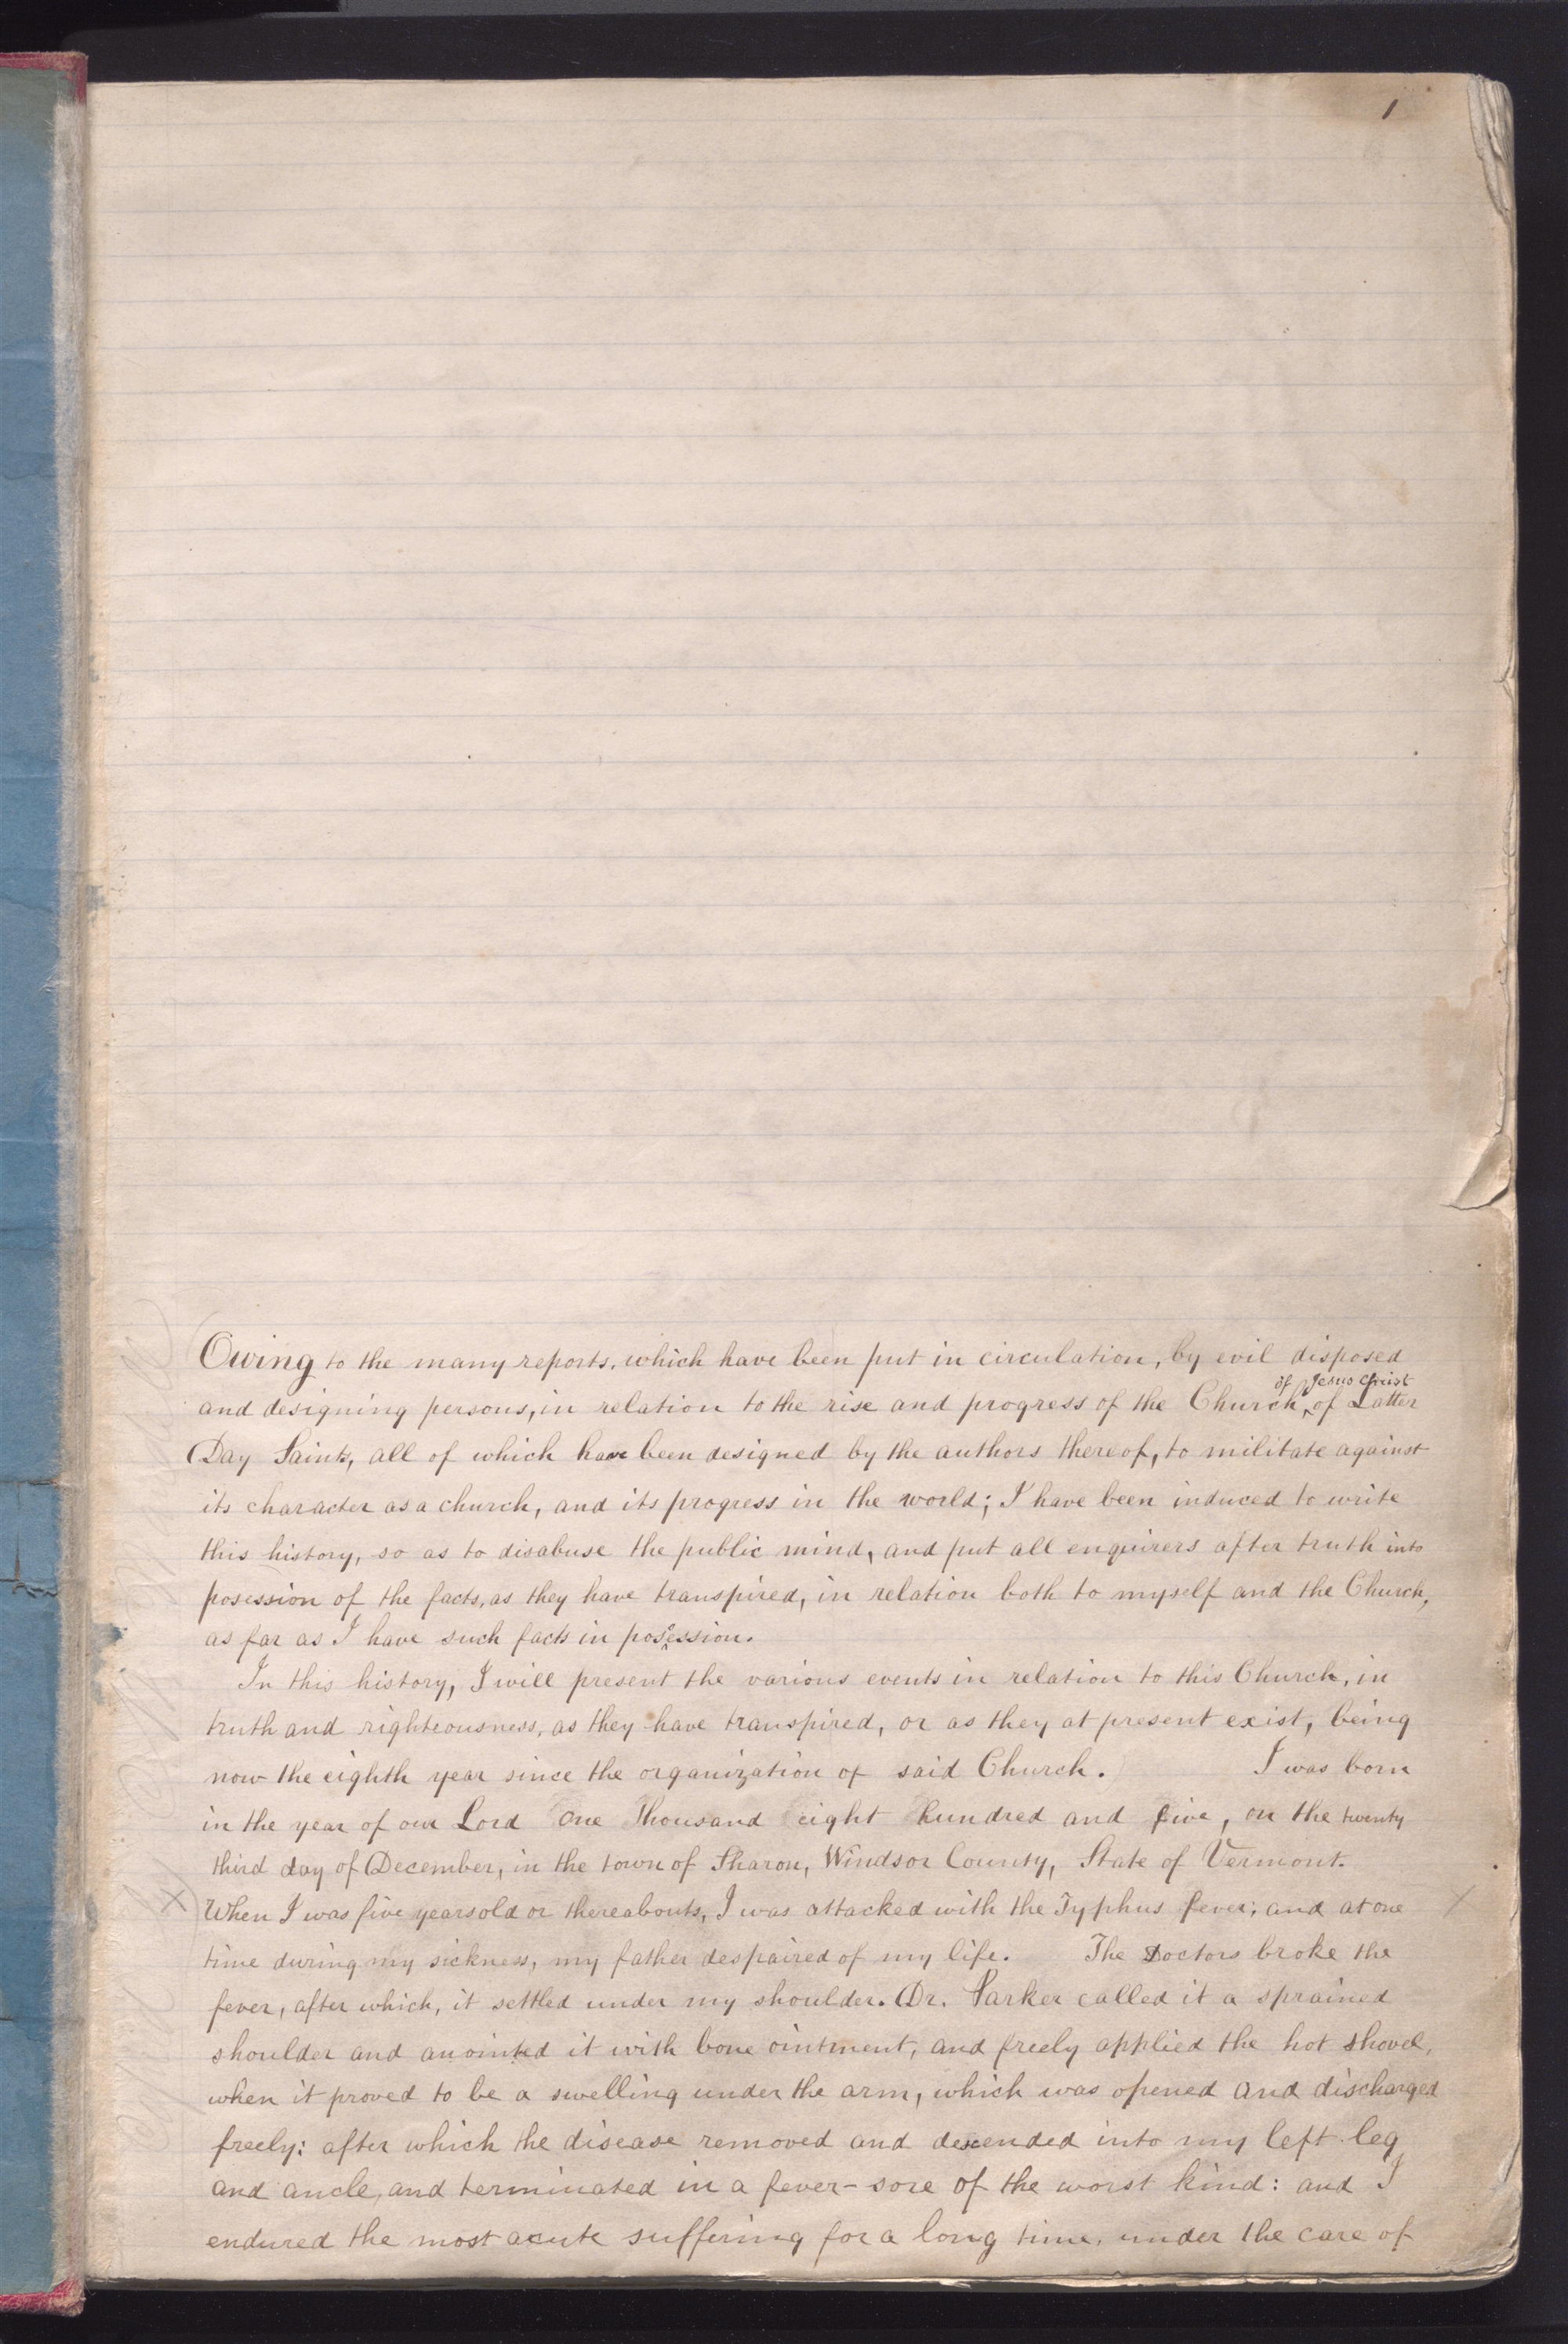 1
Owing to the many reports, which have been put in circulation, by evil disposed
of Jesus Christ
and designing persons, in relation to the rise and progress of the Church, of Latter
Day Saints, all of which have been designed by the authors thereof, to militate against
its character as a church, and its progress in the world; I have been induced to write
this history, so as to disabuse the public mind, and put all enquirers after truth into
posession of the facts, as they have transpired, in relation both to myself and the Church,
as far as I have such facts in possession.
In this history, I will present the various events in relation to this Church, in
truth and righteousness, as they have transpired, or as they at present exist, being
now the eighth year since the organization of said Church. I was born
in the year of our Lord One thousand eight hundred and five, on the twenty
third day of December, in the town of Sharon, Windsor County, State of Vermont.
When I was five years old or thereabouts, I was attacked with the Typhus fever; and at one
time during my sickness, my father despaired of my life. The Doctors broke the
fever, after which, it settled under my shoulder. Dr. Parker called it a sprained
shoulder and anointed it with bone ointment, and freely applied the hot shovel,
when it proved to be a swelling under the arm, which was opened and discharged
freely: after which the disease removed and descended into my left leg
and ancle, and terminated in a fever-sore of the worst kind: and I
endured the most acute suffering for a long time, under the care of